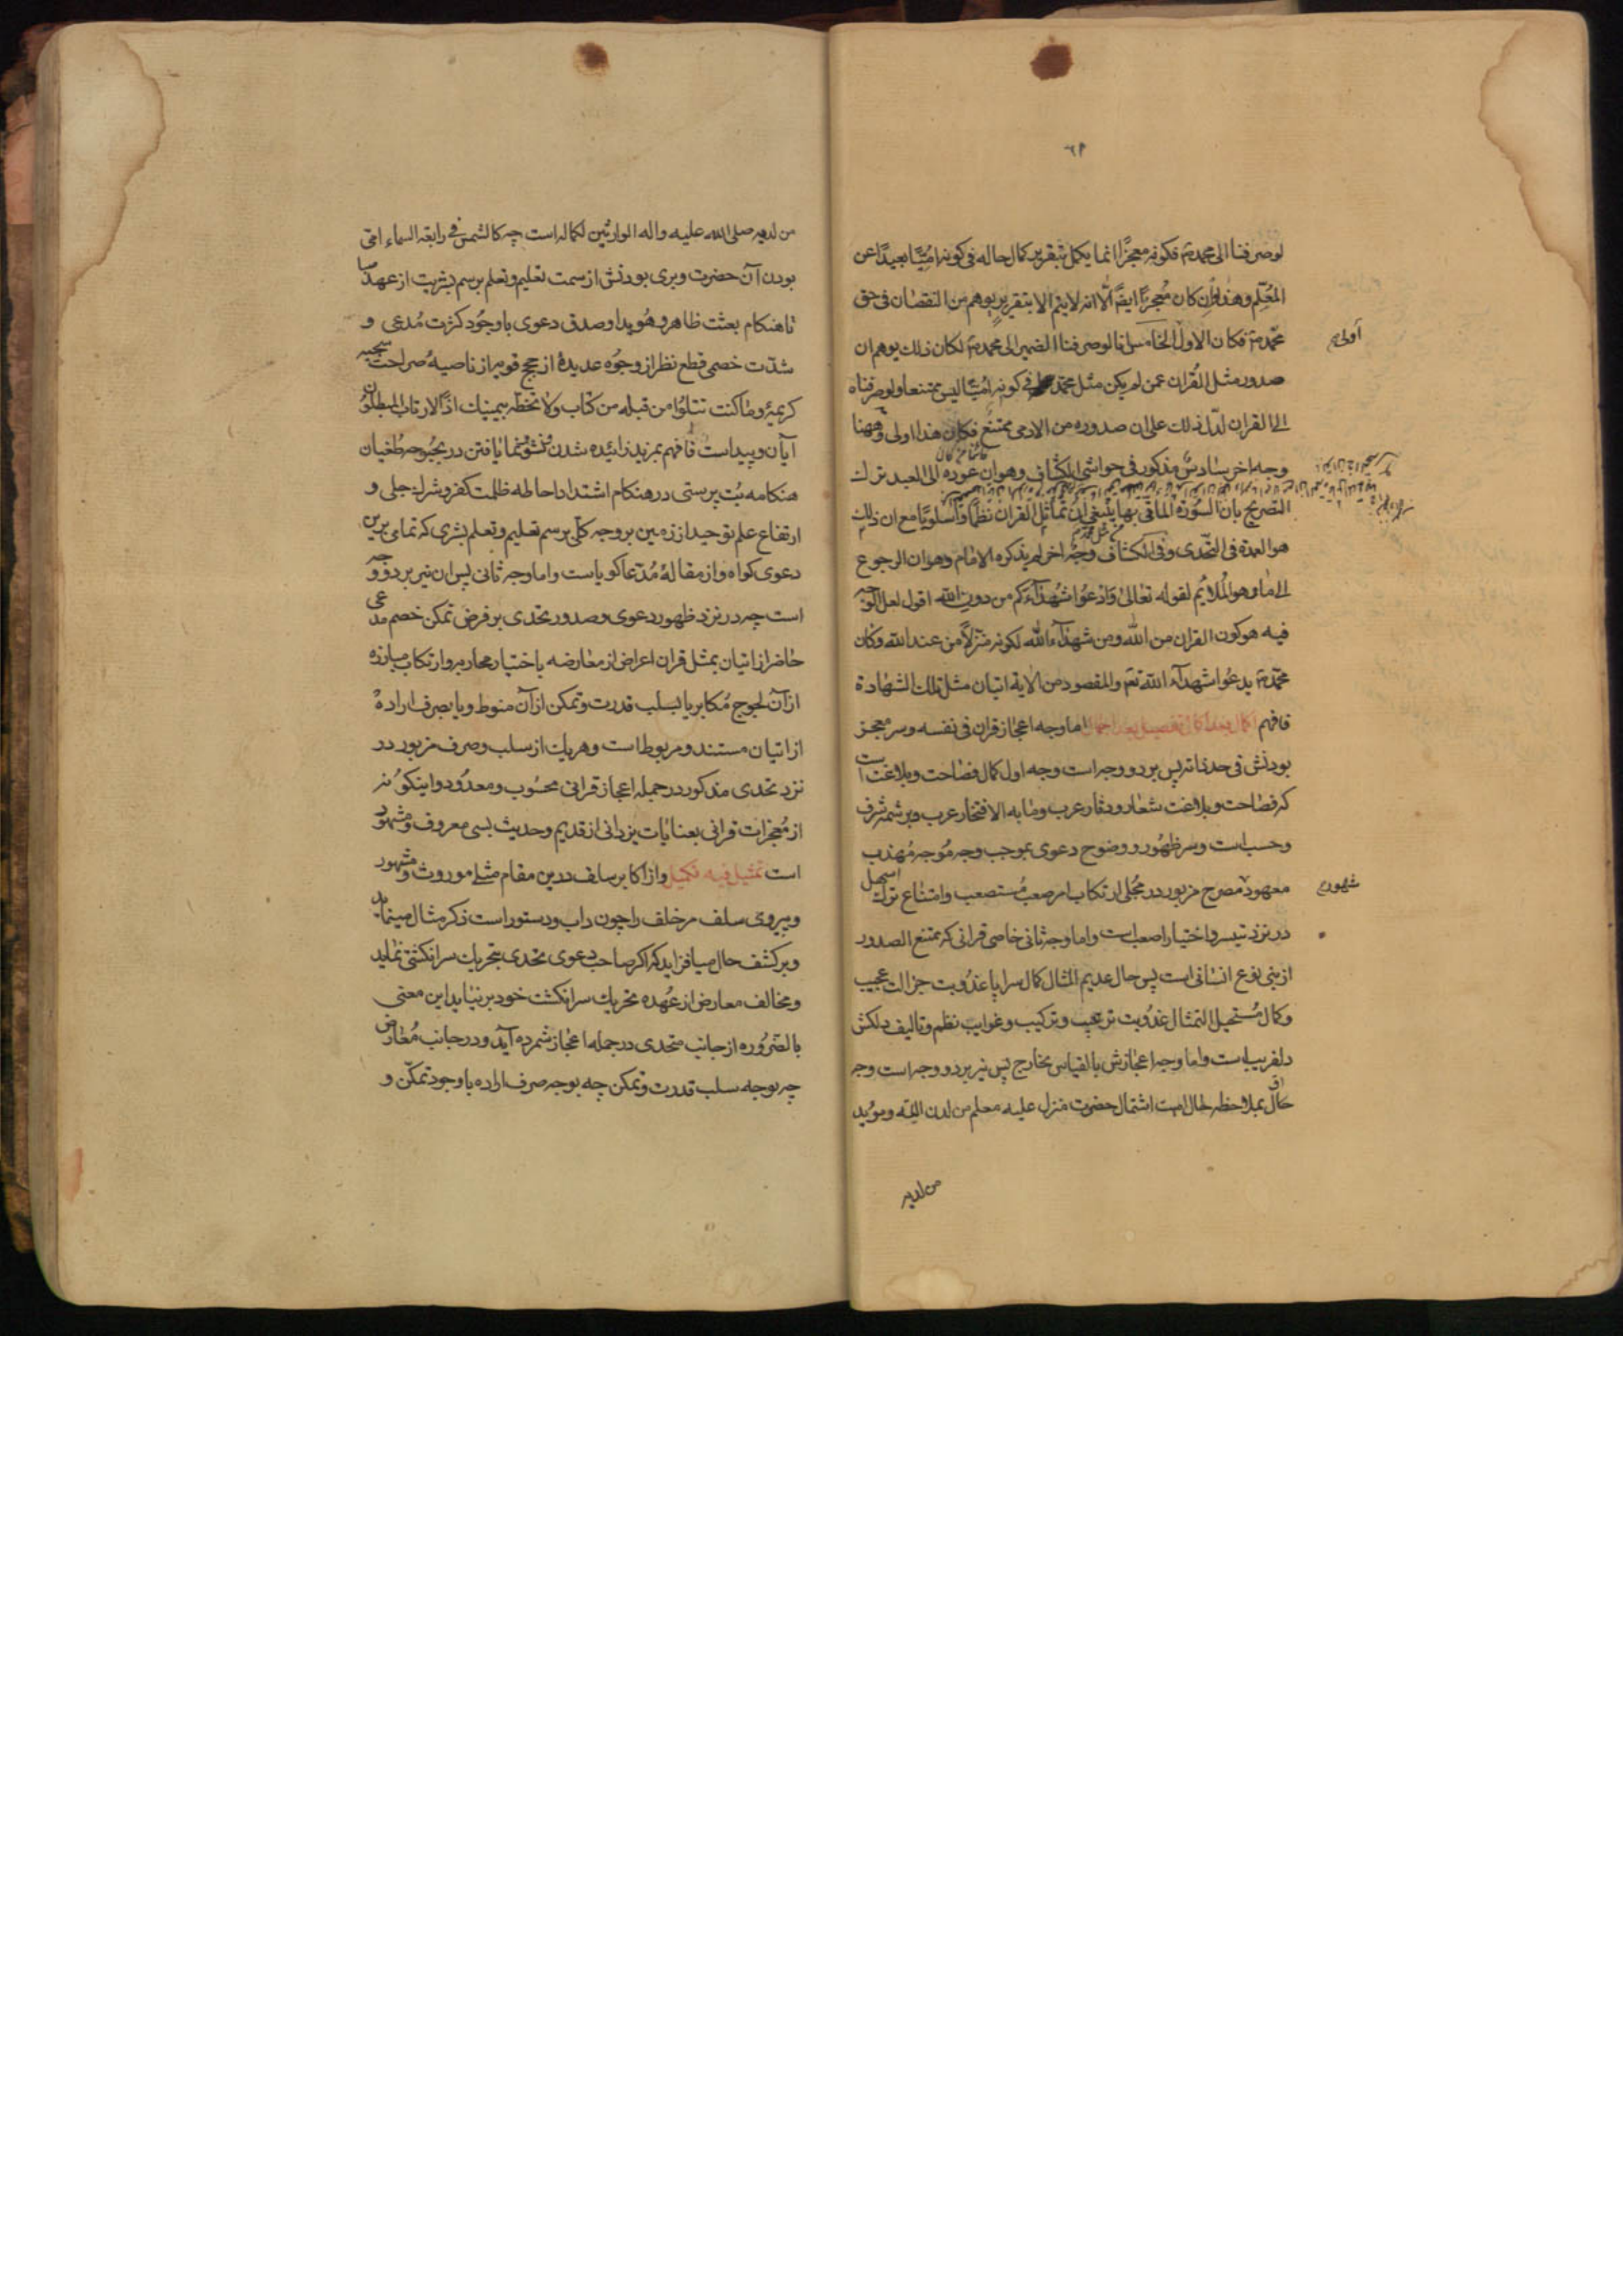 ٦٩
لو صرفنا الی محمد ص فکونه معجزًا انما یکمل بتقریر کمال حاله فی کونه امیًّا بعیدًا عن
المعلم وهذا وان کان معجزًا ایضًا الّا انه لا یتم الا بتقریر یوهم من النقصان فی حق
محمد ص فکان الاول اولی الخامس انا لو صرفنا الضمیر الی محمد ص لکان ذلك یوهم ان
صدور مثل القران عمن لم یکن مثل محمد فی کونه امیًّا لیس ممتنعا ولو صرفناه
الی القران لدلّ ذلك علی ان صدوره من الامی ممتنع فکان هذا اولی وههنا
وجه اخر سادس مذکور فی حواشی الکشاف وهو ان عوده الی العبد ترك
التصریح بان السورة الماتی بها ینبغی ان تماثل القران نظمًا واسلوبًا مع ان ذلك
هو العمدة فی التحدی وفی الکشاف وجه اخر لم یذکره الامام وهو ان الرجوع
الی ما هو الملایم لقوله تعالی وادعوا شهداءکم من دون الله اقول لعل الوجه
فیه هو کون القران من الله ومن شهداء الله لکونه منزلًا من عند الله وکان
محمد ص یدعوا شهدآء الله تعم والمقصود من الایة اتیان مثل تلك الشهادة
فافهم اکمال بعد اکمال تفصیل بعد اجمال اما وجه اعجاز قران فی نفسه وسر معجز
بودنش فی حد ذاته پس بر دو وجه است وجه اول کمال فصاحت وبلاغت است
که فصاحت وبلاغت شعار ودثار عرب وما به الافتخار عرب وسرشمه شرف
وحسب است وسر ظهور ووضوح دعوی بموجب وجه موجه مهذب
معهود مصرح مزبور در مجلی ارتکاب امر صعب مستصعب وامتناع ترك اسهل
در نزد تیسر واختیار اصعب است واما وجه ثانی خاصی قرانی که ممتنع الصدور
از بنی نوع انسانی است پس حال عدیم المثال کمال سراپا عذوبت جزالت عجیب
وکمال مستحیل التمثال عذوبت ترتیب وترکیب وغرایب نظم وتالیف دلکش
دلفریب است واما وجه اعجازش بالقیاس بخارج پس نیز بر دو وجه است وجه
اوّل بملاحظه حال امیت اشتمال حضرت منزل علیه معلم من لدن الله ومؤید
من لدیه
اولی
شهود
من لدیه صلی الله علیه واله الوارثین لکماله است چه کالشمس فی رابعة السماء امی
بودن آن حضرت وبری بودنش از سمت تعلیم وتعلم برسم بشریت از عهد صبا
تا هنکام بعثت ظاهر وهویدا وصدق دعوی با وجود کثرت مدعی و
شدّت خصمی قطع نظر از وجوه عدیدهٔ از حجج قویمه از ناصیهٔ صراحت سجیه
کریمهٔ وما کنت تتلوا من قبله من کتاب ولا تخطه بیمینك اذًا لارتاب المبطلون
آیان وپیداست فافهم بمزید زائیده شدن نشو ونما یافتن در بحبوحه طغیان
هنکامه بت پرستی در هنکام اشتداد احاطه ظلمت کفر وشرك جلی و
ارتفاع علم توحید از زمین بر وجه کلّی برسم تعلیم وتعلم بشری که تمامی برین
دعوی کواه واز مقالهٔ مدّعا کویاست واما وجه ثانی پس ان نیز بر دو وجه
است چه در نزد ظهور دعوی وصدور تحدی بر فرض تمکن خصم مدعی
حاضر از اتیان بمثل قران اعراض از معارضه یا ختیار محاربه وارتکاب مبارزه
از آن لجوج مکابر یا بسلب قدرت وتمکن از آن منوط ویا بصرف ارادهٔ
از اتیان مستند ومربوط است وهر یك از سلب وصرف مزبور در
نزد تحدی مذکور در جمله اعجاز قرانی محسوب ومعدود واینکونه
از معجزات قرانی بعنایات یزدانی از قدیم وحدیث بسی معروف ومشهور
است تمثیل فیه تکمیل واز اکابر سلف درین مقام مثلی موروث ومشهور
وپیروی سلف مر خلف را چون داب ودستور است ذکر مثال مینماید
وبر کشف حال میافزاید که اکر صاحب دعوی متحدی بتحریك سر انکشتی نماید
ومخالف معارض از عهده تحریك سر انکشت خود بر نیاید این معنی
بالضروره از جانب متحدی در جمله اعجاز شمرده آید ودر جانب معارض
چه بوجه سلب قدرت وتمکن چه بوجه صرف اراده با وجود تمکّن و